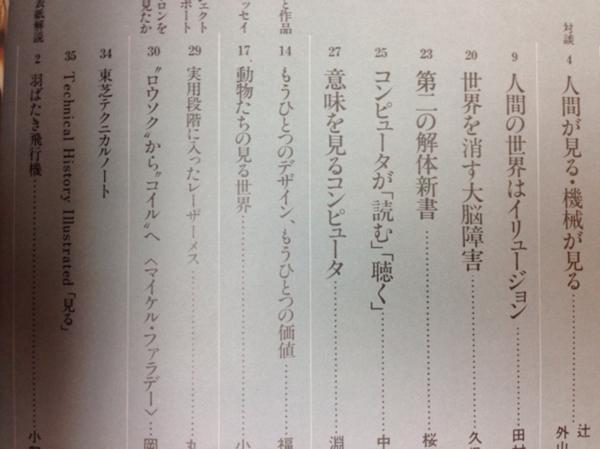 対談 4 人間が見る・機械が見る 辻 外山
9 人間の世界はイリュージョン 田村
20 世界を消す大脳障害 久
23 第二の解体新書 桜
25 コンピュータが「読む」「聴く」 中
27 意味を見るコンピュータ 淵
と作品 14 もうひとつのデザイン、もうひとつの価値 福
ッセイ 17 動物たちの見る世界 小
ェクト ポート 29 実用段階に入ったレーザーメス 丸
ロンを 見たか 30 “ロウソク”から“コイル”へ 〈マイケル・ファラデー〉 岡
34 東芝テクニカルノート
35 Technical History Illustrated「見る」
表紙解説 2 羽ばたき飛行機 小